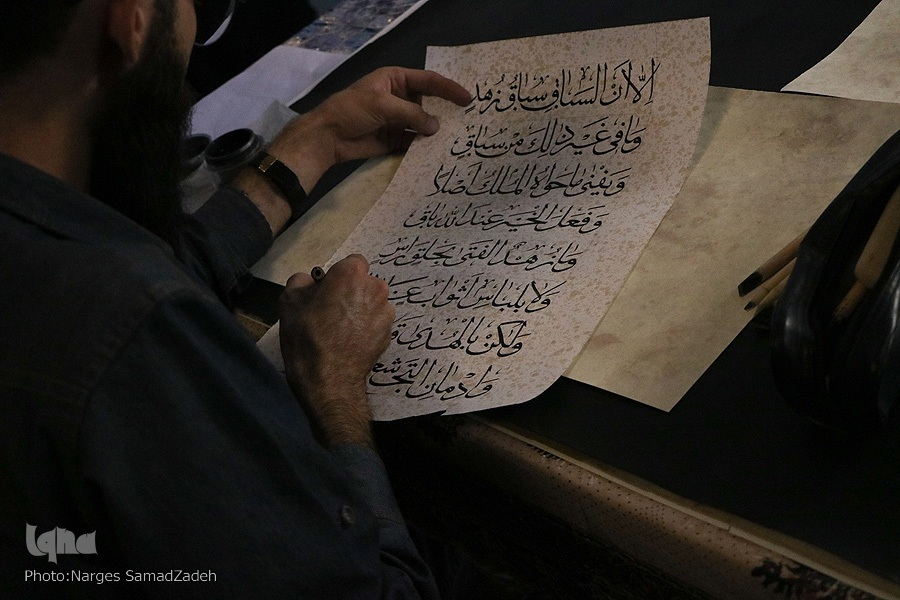 اِلّا اَنَّ السباق سباقُ زُهدٍ
وَمافی غَیرِ ذٰلِكَ مِن سباقٍ
وَیَفنی ماحَواهُ المُلك اَصلاً
وَفعلُ الخَیرِ عِندَ الله باقٍ
وَمازهد الفَتی بِحَلقِ راسٍ
وَلا بِلِباسِ اَثوابٍ
وَلکن بِالهُدی
وَاِدمانِ التَخشع
iqna
Photo:Narges SamadZadeh